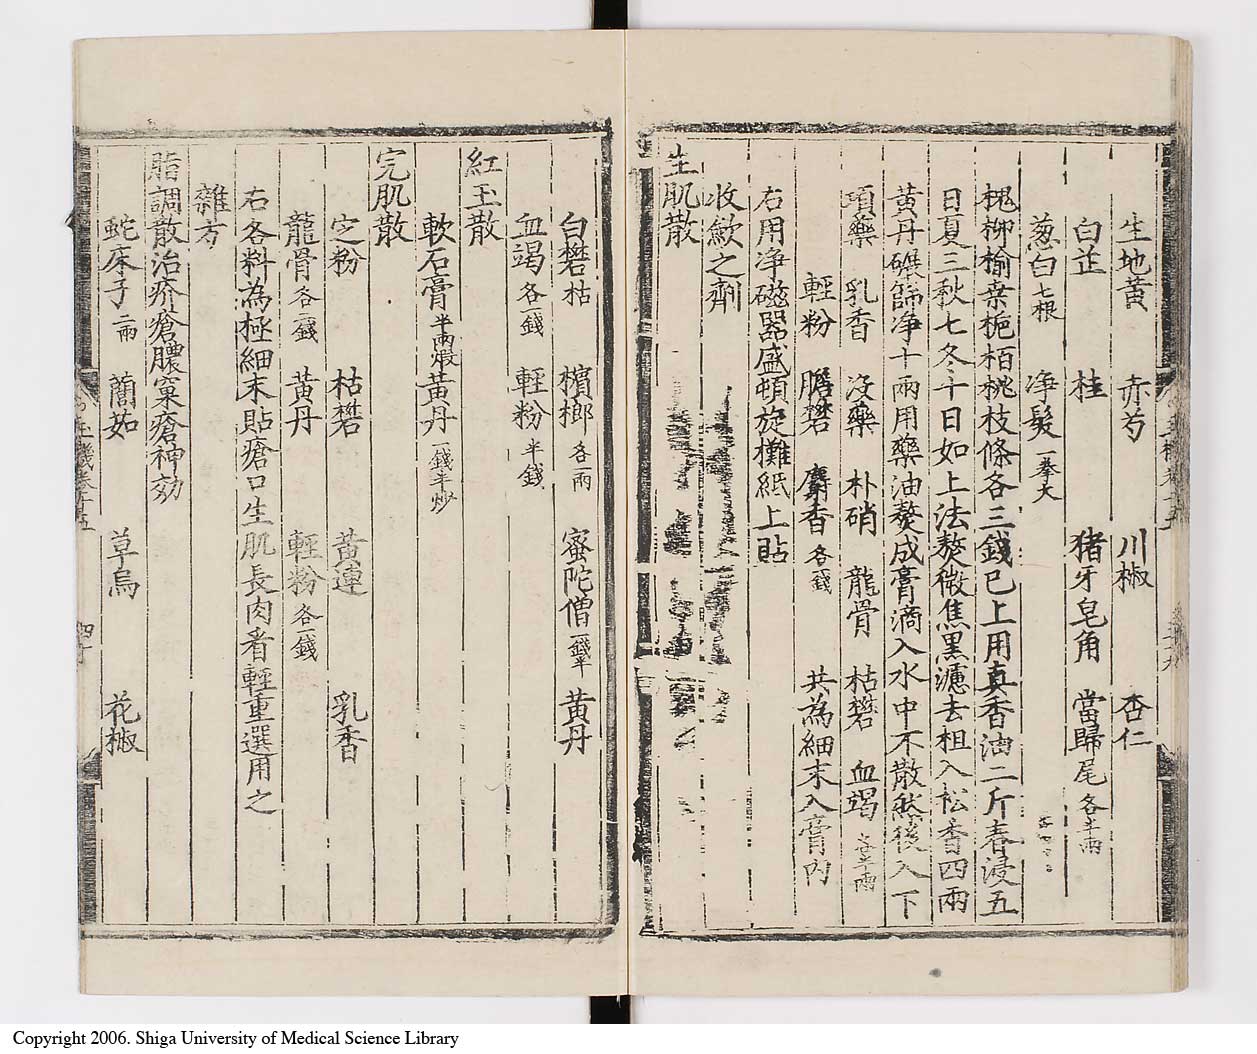 生地黄 赤芍 川椒 杏仁
白芷 桂 猪牙皂角 當歸尾各半兩
葱白七根 净髮一拳大
槐柳榆桒栀栢桃枝條各三錢已上用真香油二斤春浸五
日夏三秋七冬十日如上法熬微焦黒濾去柤入松香四兩
黄丹礫篩净十兩用藥油熬成膏滴入水中不散然後入下
項藥 乳香 沒藥 朴硝 龍骨 枯礬 血竭各半兩
輕粉 膽礬 麝香各一錢 共為細末入膏内
右用净磁器盛頓旋攤紙上貼
收歛之劑
生肌散
白礬枯 檳榔各一兩 蜜陀僧一錢半 黄丹
血竭各一錢 輕粉半錢
紅玉散
軟石膏半兩煅 黄丹一錢半炒
完肌散
定粉 枯礬 黄連 乳香
龍骨各二錢 黄丹 輕粉各一錢
右各料為極細末貼瘡口生肌長肉看輕重選用之
雜方
脂調散治疥瘡膿窠瘡神効
蛇床子二兩 藺茹 草烏 花椒
Copyright 2006. Shiga University of Medical Science Library